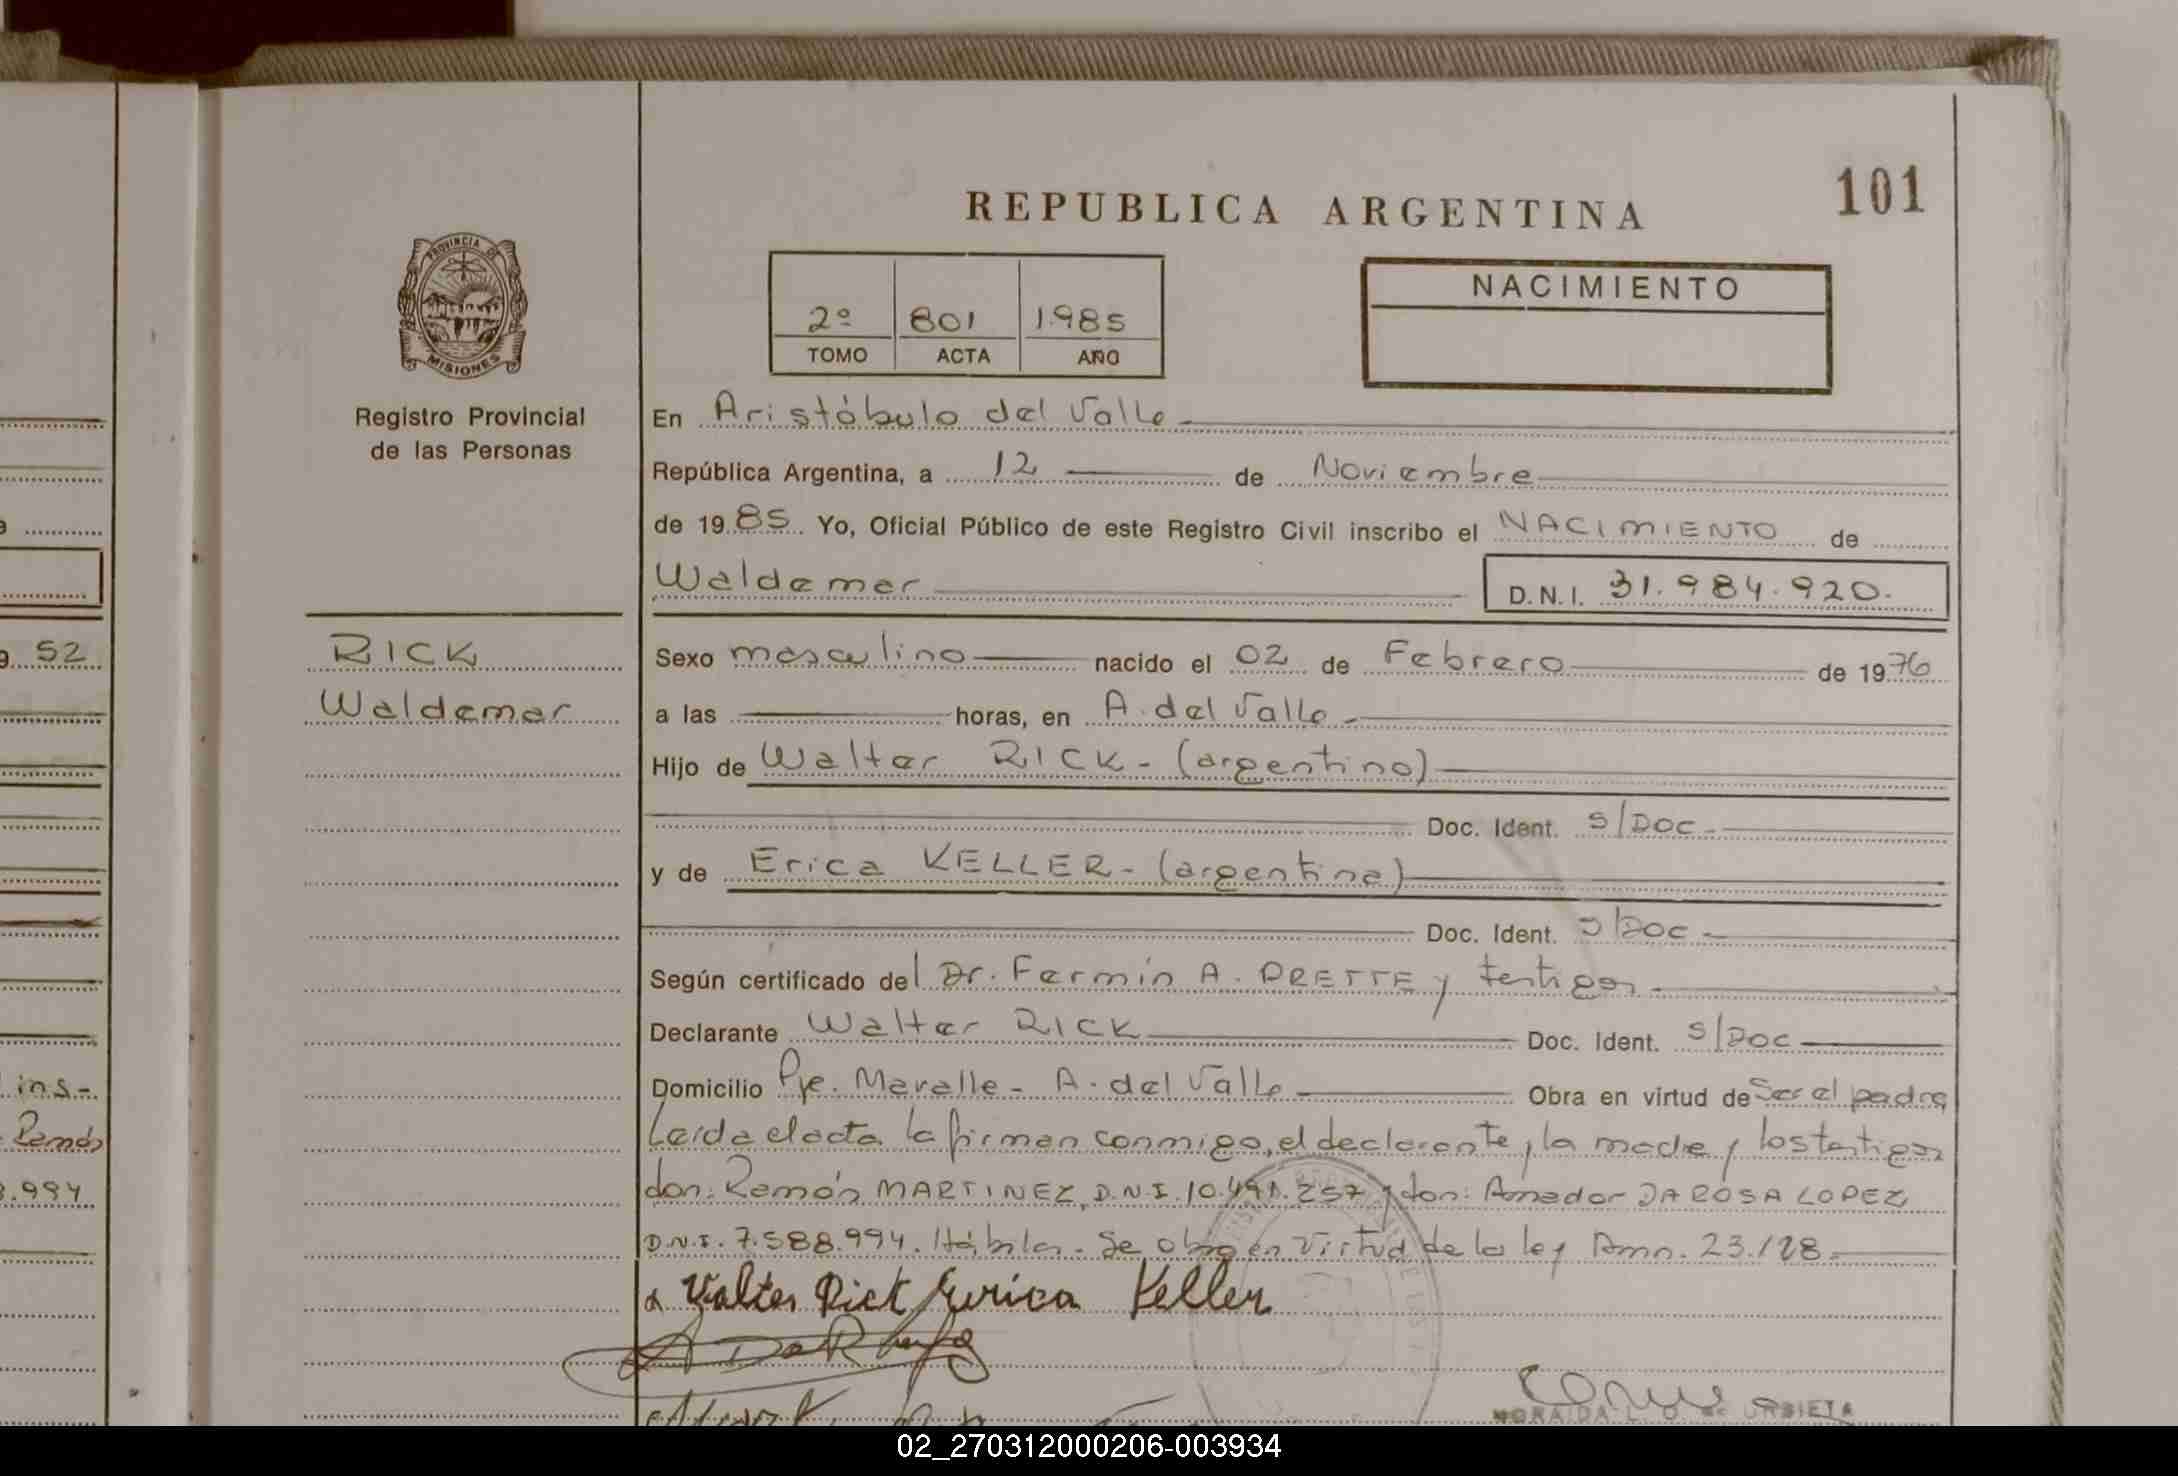 101
REPUBLICA ARGENTINA
PROVINCIA DE
MISIONES
Registro Provincial
de las Personas
2º 801 1.985
TOMO ACTA AÑO
NACIMIENTO
En Aristóbulo del Valle
República Argentina, a 12 de Noviembre
de 1985 Yo, Oficial Público de este Registro Civil inscribo el NACIMIENTO de
Waldemar D.N.I. 31.984.920.
RICK
Waldemar
Sexo masculino nacido el 02 de Febrero de 1976
a las horas, en A. del Valle
Hijo de Walter RICK - (argentino)
Doc. Ident. S/DOC
y de Erica KELLER - (argentina)
Doc. Ident. S/DOC
Según certificado del Dr. Fermín A. PRETTE y testigos
Declarante Walter RICK Doc. Ident. S/DOC
Domicilio Pje. Maralle - A. del Valle Obra en virtud de Ser el padre
Leída el acta la firman conmigo, el declarante, la madre y los testigos
don: Ramón MARTINEZ, D.N.I. 10.491.257 y don: Amador DA ROSA LOPEZ
D.N.I. 7.588.994. Hábiles. Se obra en virtud de la ley Amn. 23.128
Valter Rick Eurica Keller
52
ins-
Ramón
.994
02_270312000206-003934